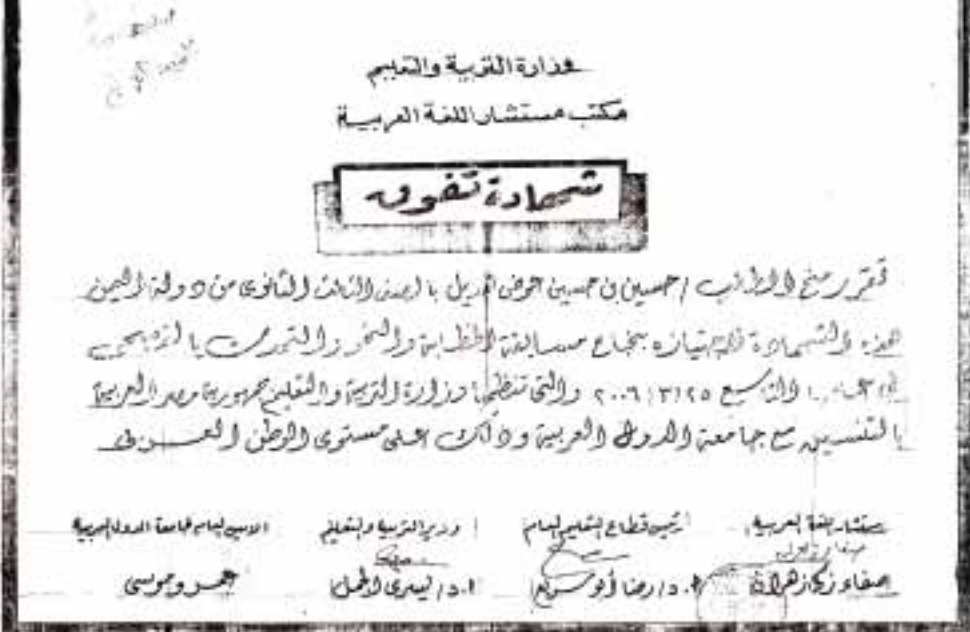 وزارة التربية والتعليم
مكتب مستشار اللغة العربية
شهادة تفوق
تقرر منح الطالب / حسين بن حسين عوض هديل بالصف الثالث الثانوى من دولة اليمن
هذه الشهادة لاجتيازه بنجاح مسابقة الخطابة والنحو والتحدث بالفصحى
فى عامها التاسع ٢٠٠٦/٣/٢٥ والتى تنظمها وزارة التربية والتعليم جمهورية مصر العربية
بالتنسيق مع جامعة الدول العربية وذلك على مستوى الوطن العربى
مستشار اللغة العربية رئيس قطاع التعليم العام وزير التربية والتعليم الامين العام لجامعة الدول العربية
صفاء زكى زهران أ.د/ رضا أبو سريع أ.د/ يسرى الجمل عمرو موسى